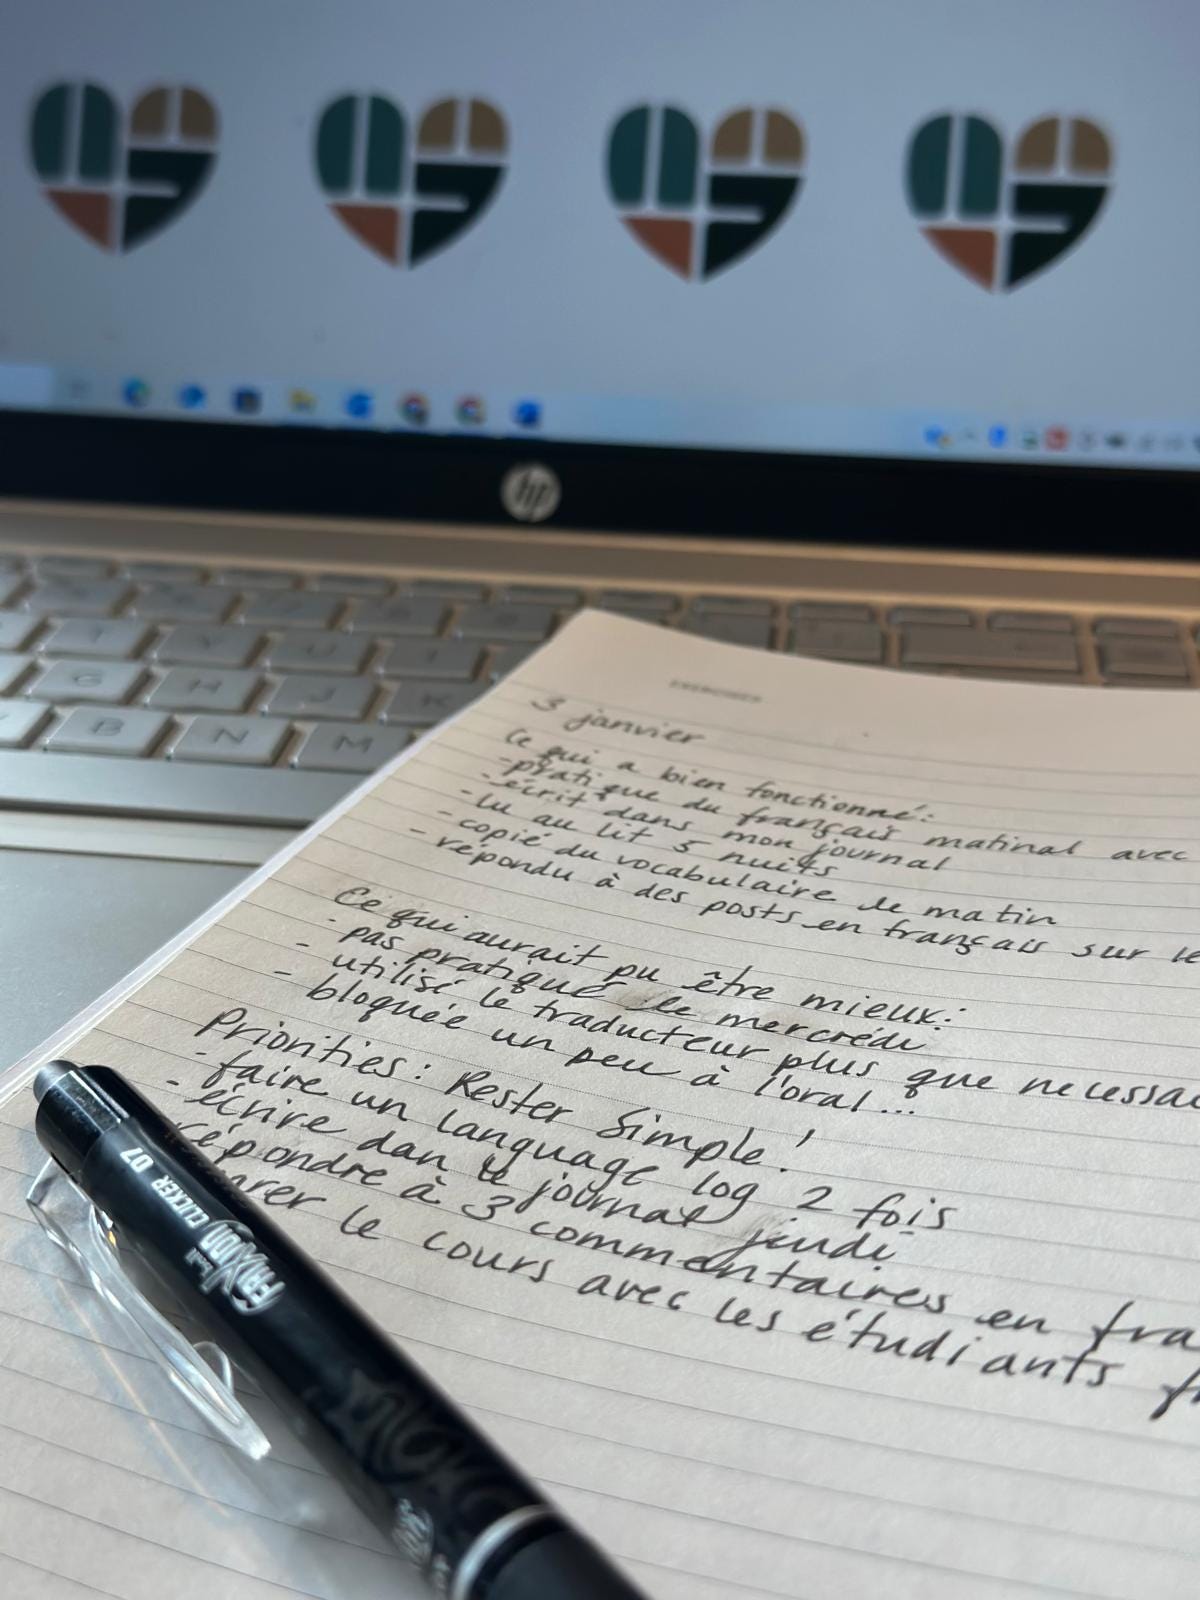 hp
G H J K
B N M
EXERCISES
3 janvier
Ce qui a bien fonctionné:
- pratique du français matinal avec
- écrit dans mon journal
- lu au lit 5 nuits
- copié du vocabulaire le matin
- répondu à des posts en français sur le
Ce qui aurait pu être mieux:
- pas pratiqué le mercredi
- utilisé le traducteur plus que necessai
- bloquée un peu à l'oral...
Priorities: Rester Simple!
- faire un language log 2 fois
- écrire dan le journal jeudi
répondre à 3 commentaires en fra
le cours avec les étudiants
FRIXION CLICKER 07